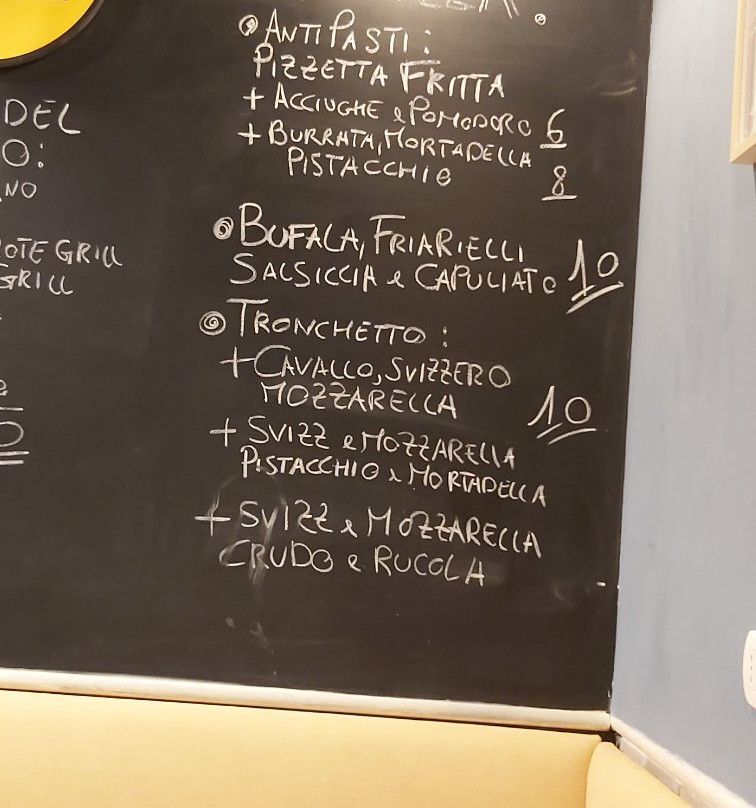 ANTIPASTI:
PIZZETTA FRITTA
+ ACCIUGHE e POMODORO 6
+ BURRATA, MORTADELLA
PISTACCHIO 8
BUFALA, FRIARIELLI
SALSICCIA e CAPULIATO 10
TRONCHETTO:
+ CAVALLO, SVIZZERO
MOZZARELLA 10
+ SVIZZ e MOZZARELLA
PISTACCHIO e MORTADELLA
+ SVIZZ e MOZZARELLA
CRUDO e RUCOLA
DEL
O:
NO
OTE GRILL
GRILL